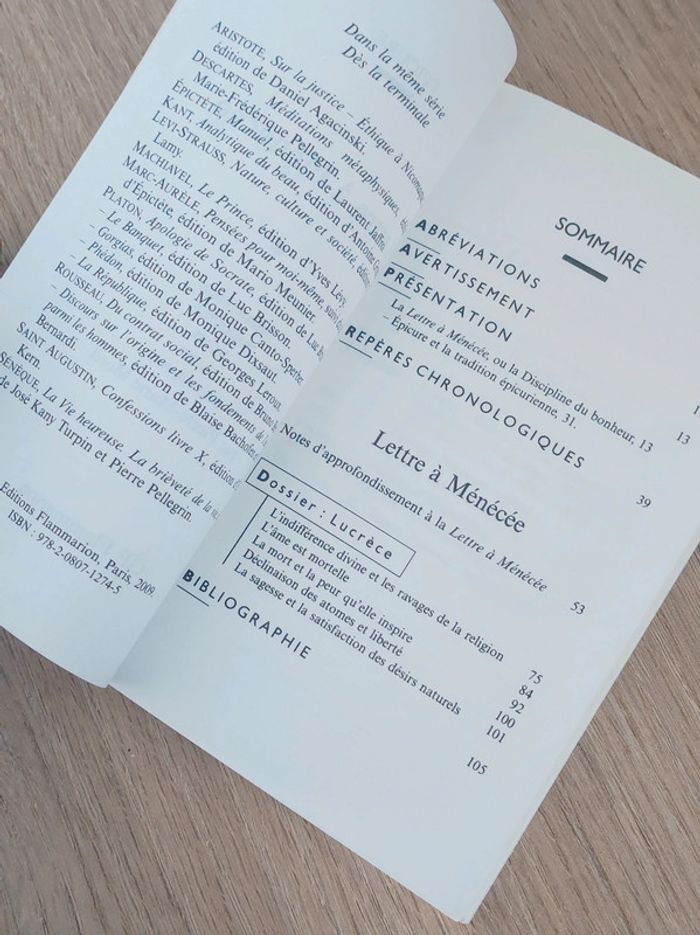 Dans la même série
Dès la terminale
ARISTOTE, Sur la justice – Éthique à Nicomaque,
édition de Daniel Agacinski.
DESCARTES, Méditations métaphysiques,
Marie-Frédérique Pellegrin.
ÉPICTÈTE, Manuel, édition de Laurent Jaffro.
KANT, Analytique du beau, édition d'Antoine
LEVI-STRAUSS, Nature, culture et société, édition
Lamy.
MACHIAVEL, Le Prince, édition d'Yves Lévy.
MARC-AURÈLE, Pensées pour moi-même,
d'Épictète, édition de Mario Meunier.
PLATON, Apologie de Socrate, édition de Luc
– Le Banquet, édition de Luc Brisson.
– Gorgias, édition de Monique Canto-Sperber.
– Phédon, édition de Monique Dixsaut.
– La République, édition de Georges Leroux.
ROUSSEAU, Du contrat social, édition de Bruno
– Discours sur l'origine et les fondements de
parmi les hommes, édition de Blaise Bachofen
Bernardi.
SAINT AUGUSTIN, Confessions livre X, édition
Kern.
SÉNÈQUE, La Vie heureuse. La brièveté de la
de José Kany Turpin et Pierre Pellegrin.
Éditions Flammarion, Paris, 2009
ISBN : 978-2-0807-1274-5
SOMMAIRE
ABRÉVIATIONS
AVERTISSEMENT
PRÉSENTATION
La Lettre à Ménécée, ou la Discipline du bonheur, 13
– Épicure et la tradition épicurienne, 31.
13
REPÈRES CHRONOLOGIQUES
39
Lettre à Ménécée
Notes d'approfondissement à la Lettre à Ménécée
53
Dossier : Lucrèce
L'indifférence divine et les ravages de la religion 75
L'âme est mortelle 84
La mort et la peur qu'elle inspire 92
Déclinaison des atomes et liberté 100
La sagesse et la satisfaction des désirs naturels 101
BIBLIOGRAPHIE 105